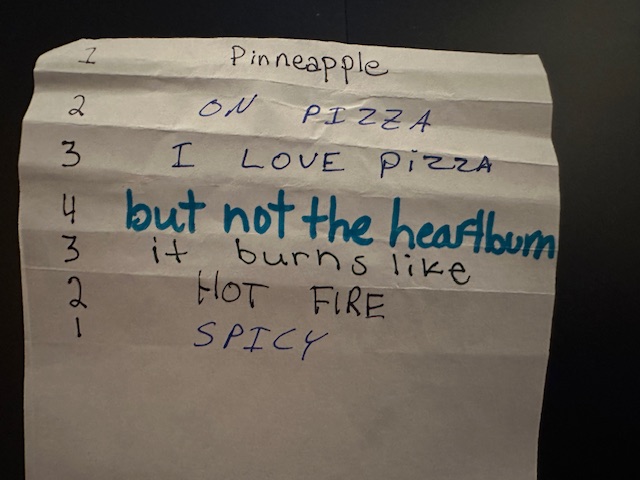 1 Pinneapple
2 ON PIZZA
3 I LOVE PiZZA
4 but not the heartburn
3 it burns like
2 HOT FIRE
1 SPICY